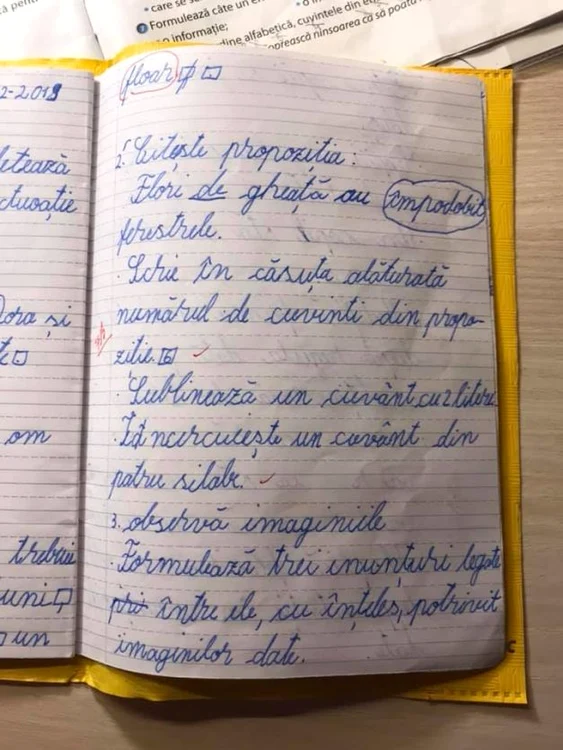 care se s
Formulează câte un en
o informație;
dine alfabetică, cuvintele din en
oprească ninsoarea ca să poată
2-2019
letează
ctuație
Dora și
om
trebuie
uni
un
floar
2. Citește propoziția:
Flori de gheață au împodobit
ferestrele.
· Scrie în căsuța alăturată
numărul de cuvinti din propo-
ziție. 6
· Sublinează un cuvânt cu 2 litere.
· Încercuiește un cuvânt din
patru silabe.
3. observă imaginiile
· Formulează trei enunțuri legate
pri între ele, cu înțeles, potrivit
imaginilor date.